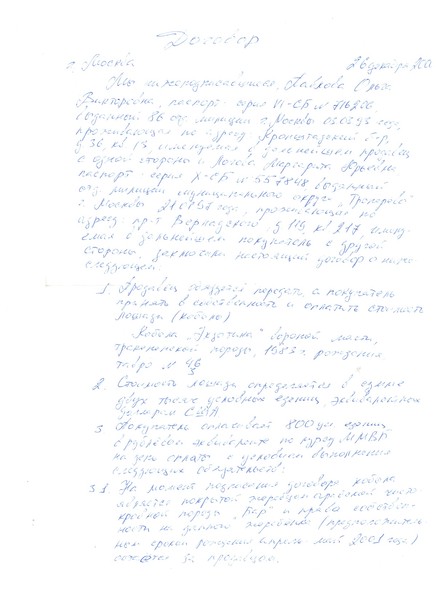 Договор
г. Москва 26 декабря 200
Мы нижеподписавшиеся, Павлова Ольга
Викторовна, паспорт - серия VI-СБ N 716226
выданный 86 отд. милиции г. Москвы 03.02.93 года,
проживающая по адресу
д 36, кв 13, именуемая в дальнейшем продавец
с одной стороны и Маргарита Юрьевна
паспорт - серия X-СБ N 557848 выданный
отд. милиции муниципального округа "Тропарево"
г. Москвы 21.01.97 года, проживающая по
адресу пр-т Вернадского, д 119, кв 217, имену-
емая в дальнейшем покупатель с другой
стороны, заключили настоящий договор о ниже
следующем:
1. Продавец обязуется передать, а покупатель
принять в собственность и оплатить стоимость
лошади (кобыла)
Кобыла вороной масти,
тракененской породы, 1983 г. рождения
тавро N 46
2. Стоимость лошади определяется в сумме
двух тысяч условных единиц, эквивалентном
долларам США
3 Покупатель оплачивает 800 усл. единиц
в рублевом эквиваленте по курсу ММВБ
на день оплаты с условием выполнения
следующих обязательств:
3.1. На момент подписания договора кобыла
является покрытой жеребцом арабской чисто-
кровной породы "Бар" и права собствен-
ности на данного жеребенка (предположитель-
ным сроком рождения апрель май 2001 года)
остается за продавцом.